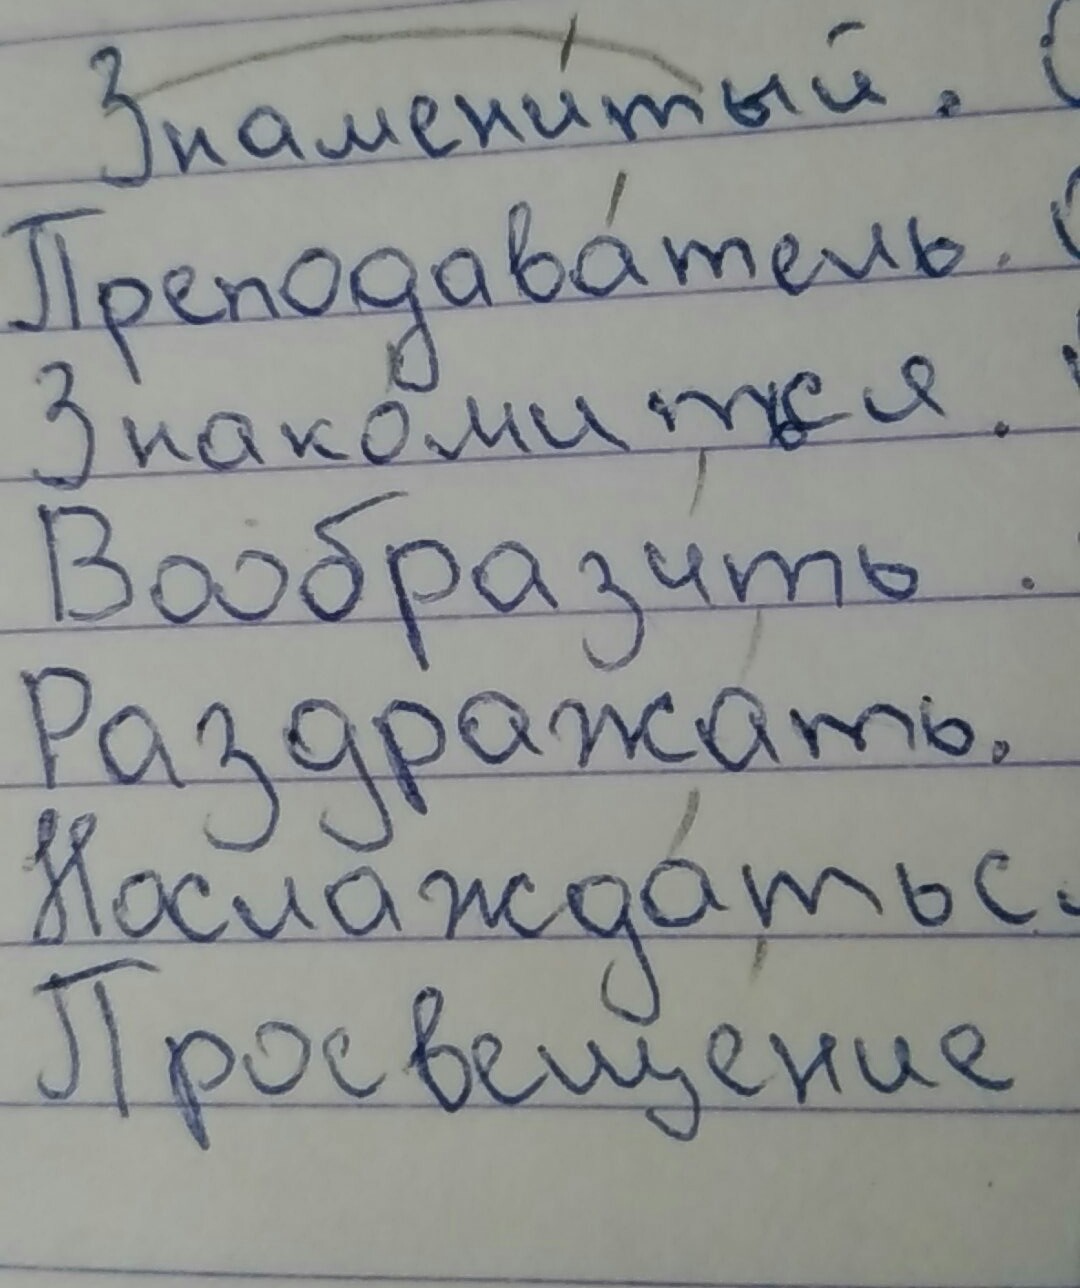 Знамени́тый. (
Преподава́тель. (
Знако́миться.
Вообрази́ть.
Раздража́ть.
Наслажда́тьс.
Просвеще́ние